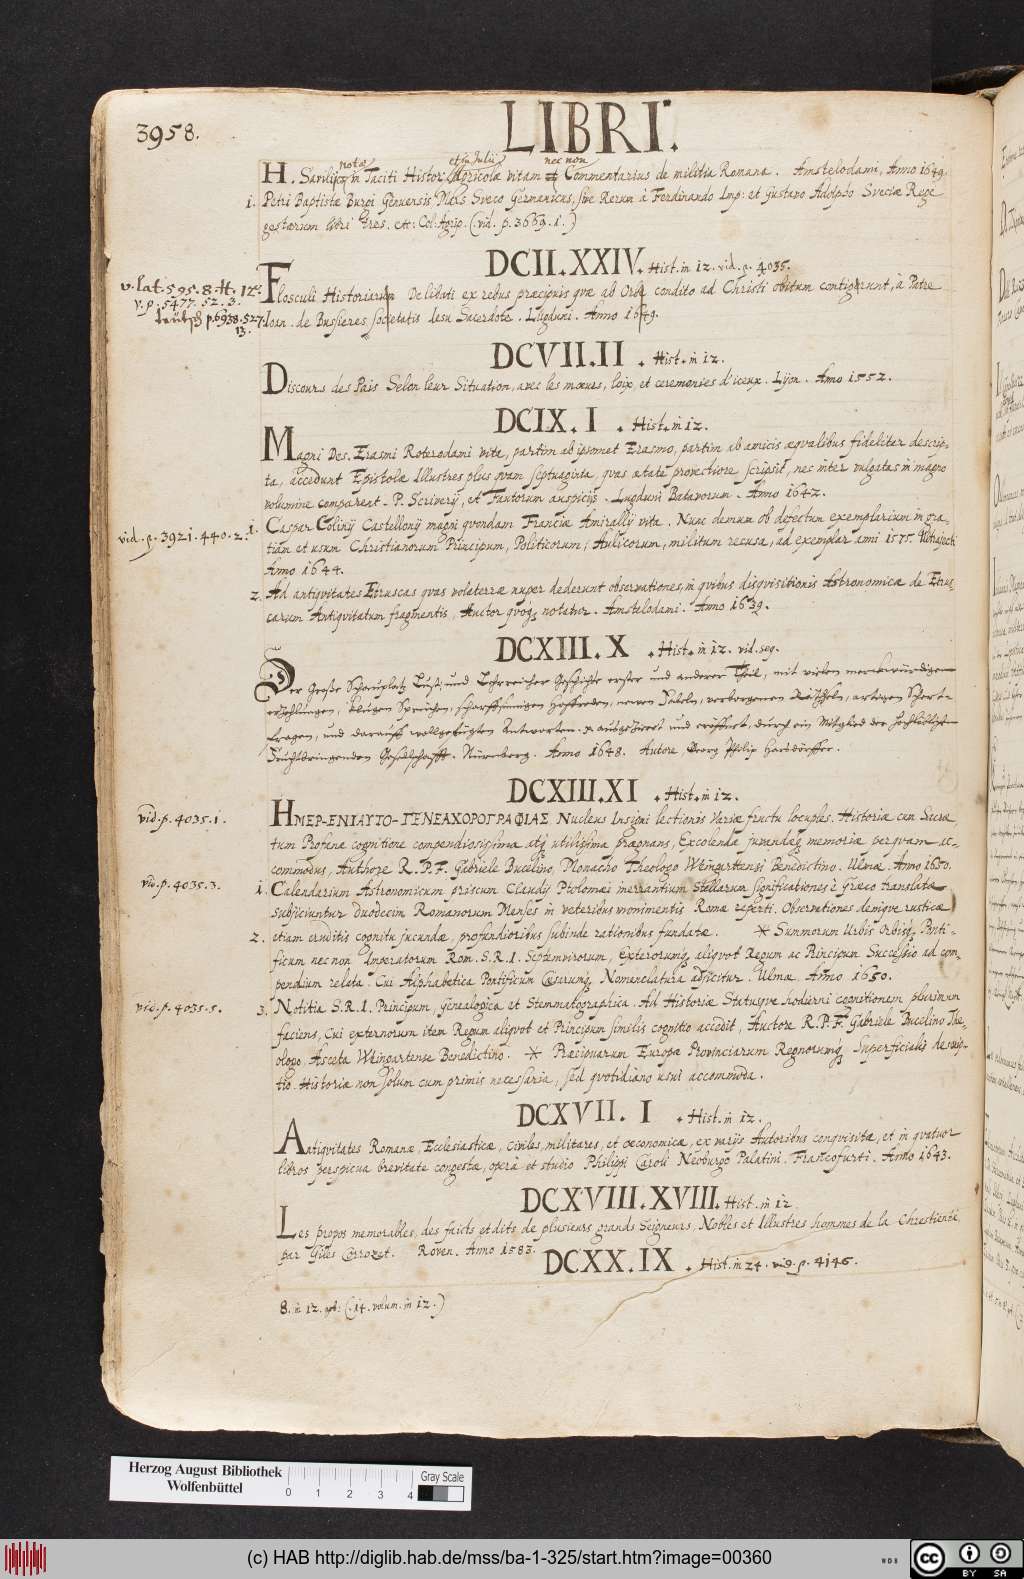 3958.
LIBRI.
notæ et in Julii nec non
H. Savilij in Taciti Histor. Agricolæ vitam et Commentarius de militia Romana. Amstelodami, Anno 1649.
1. Petri Baptistæ Burgi Genuensis Mars Sveco Germanicus, sive Rerum à Ferdinando Imp: et Gustavo Adolpho Sveciæ Rege
gestarum libri tres. etc: Col: Agrip. (vid. p. 3669. 1.)
DCII.XXIV. Hist. in 12. vid. p. 4035.
v. lat. 595. 8. H. 12º.
v. p. 5477. 52. 3.
teütsch p. 6938. 527.
13.
Flosculi Historiarum Delibati ex rebus præcipuis quæ ab Orbe condito ad Christi obitum contigerunt, à Patre
Ioan. de Bussieres societatis Iesu Sacerdote. Lugduni. Anno 1649.
DCVII.II. Hist. in 12.
Discours des Pais Selon leur Situation, avec les mœurs, loix, et ceremonies d'iceux. Lyon. Anno 1552.
DCIX. I. Hist. in 12.
Magni Des. Erasmi Roterodami vita, partim ab ipsomet Erasmo, partim ab amicis æqvalibus fideliter descrip-
ta, accedunt Epistolæ Illustres plus qvam septuaginta, qvas ætate provectiore scripsit, nec inter vulgatas in magno
volumine comparent. P. Scriverij, et Fautorum auspicijs. Lugduni Batavorum. Anno 1642.
vid. p. 3921. 440. 2.
1. Caspar Colinij Castellonij magni qvondam Franciæ Amirallij vita. Nunc demum ob defectum exemplarium in gra-
tiam et usum Christianorum Principum, Politicorum, Aulicorum, militum recusa, ad exemplar anni 1575. Ultrajecti
Anno 1644.
2. Ad antiqvitates Etruscas qvas volaterræ nuper dederunt observationes, in qvibus disqvisitionis Astronomicæ de Etrus-
carum Antiqvitatum fragmentis, Auctor qvoq; notatur. Amstelodami. Anno 1639.
DCXIII. X. Hist. in 12. vid. seq.
Der Große Schauplatz Lust- und Lehrreicher Geschichte erster und anderer Theil, mit vielen merckwürdigen
erzehlungen, klugen Sprüchen, scharffsinnigen Hoffreden, neuen Fabeln, verborgenen Rähtseln, artigen Schertz-
fragen, und darauff wollgefügten Antworten. ausgezieret und eröffnet, durch ein Mitglied der Hochlöblichen
Fruchtbringenden Gesellschafft. Nürnberg. Anno 1648. Autore Georg Philip Harsdörffer.
DCXIII.XI. Hist. in 12.
vid. p. 4035. 1.
HMEP-ENIAYTO-ΓENEAXOPOΓPAΦIAΣ Nucleus Insigni lectionis variæ fructu locuples. Historiæ cum Sacræ,
tum Profanæ cognitione compendiosissima atq; utilissima prægnans, Excolendæ juvandæq; memoriæ perqvam ac-
commodus, Authore R.P.F. Gabriele Bucelino, Monacho Theologo Weingartensi Benedictino. Ulmæ. Anno 1650.
vid. p. 4035. 3.
1. Calendarium Astronomicum priscum Claudij Ptolomæi inerrantium stellarum significationes è Græco translatæ
Subjiciuntur duodecim Romanorum Menses in veteribus monimentis Romæ reperti. Observationes deniqve rusticæ
2. etiam eruditis cognitu jucundæ, profundioribus subinde rationibus fundatæ. * Summorum Urbis Orbisq; Ponti-
ficum nec non Imperatorum Rom. S.R.I. Septemvirorum, Exterorumq; aliqvot Regum ac Principum Successio ad com-
pendium relata. Cui Alphabetica Pontificum Cæsarumq; Nomenclatura adjicitur. Ulmæ. Anno 1650.
vid. p. 4035. 5.
3. Notitia S.R.I. Principum, Genealogica et Stemmatographica. Ad Historiæ Statusqve hodierni cognitionem plurimum
faciens, Cui externorum item Regum aliqvot et Principum similis cognitio accedit, Auctore R.P.F. Gabriele Bucelino The-
ologo, Asceta Weingartense Benedictino. * Præcipuarum Europæ Provinciarum Regnorumq; Superficialis descrip-
tio. Historiæ non solum cum primis necessaria, sed qvotidiano usui accommoda.
DCXVII. I. Hist. in 12.
Antiqvitates Romanæ Ecclesiasticæ, civiles, militares, et œconomicæ, ex variis Autoribus conqvisitæ, et in qvatuor
libros perspicua brevitate congestæ, operâ et studio Philippi Caroli Neoburgo Palatini. Francofurti. Anno 1643.
DCXVIII.XVIII. Hist. in 12.
Les propos memorables, des faicts et dits de plusieurs grands Seigneurs, Nobles et Illustres hommes de la Chrestienté
par Giles Corrozet. Roven. Anno 1583.
DCXX.IX. Hist. in 24. vid. p. 4146.
8. in 12. (14. volum. in 12.)
Herzog August Bibliothek
Wolfenbüttel
0 1 2 3 4
Gray Scale
(c) HAB http://diglib.hab.de/mss/ba-1-325/start.htm?image=00360
WDB
cc BY SA